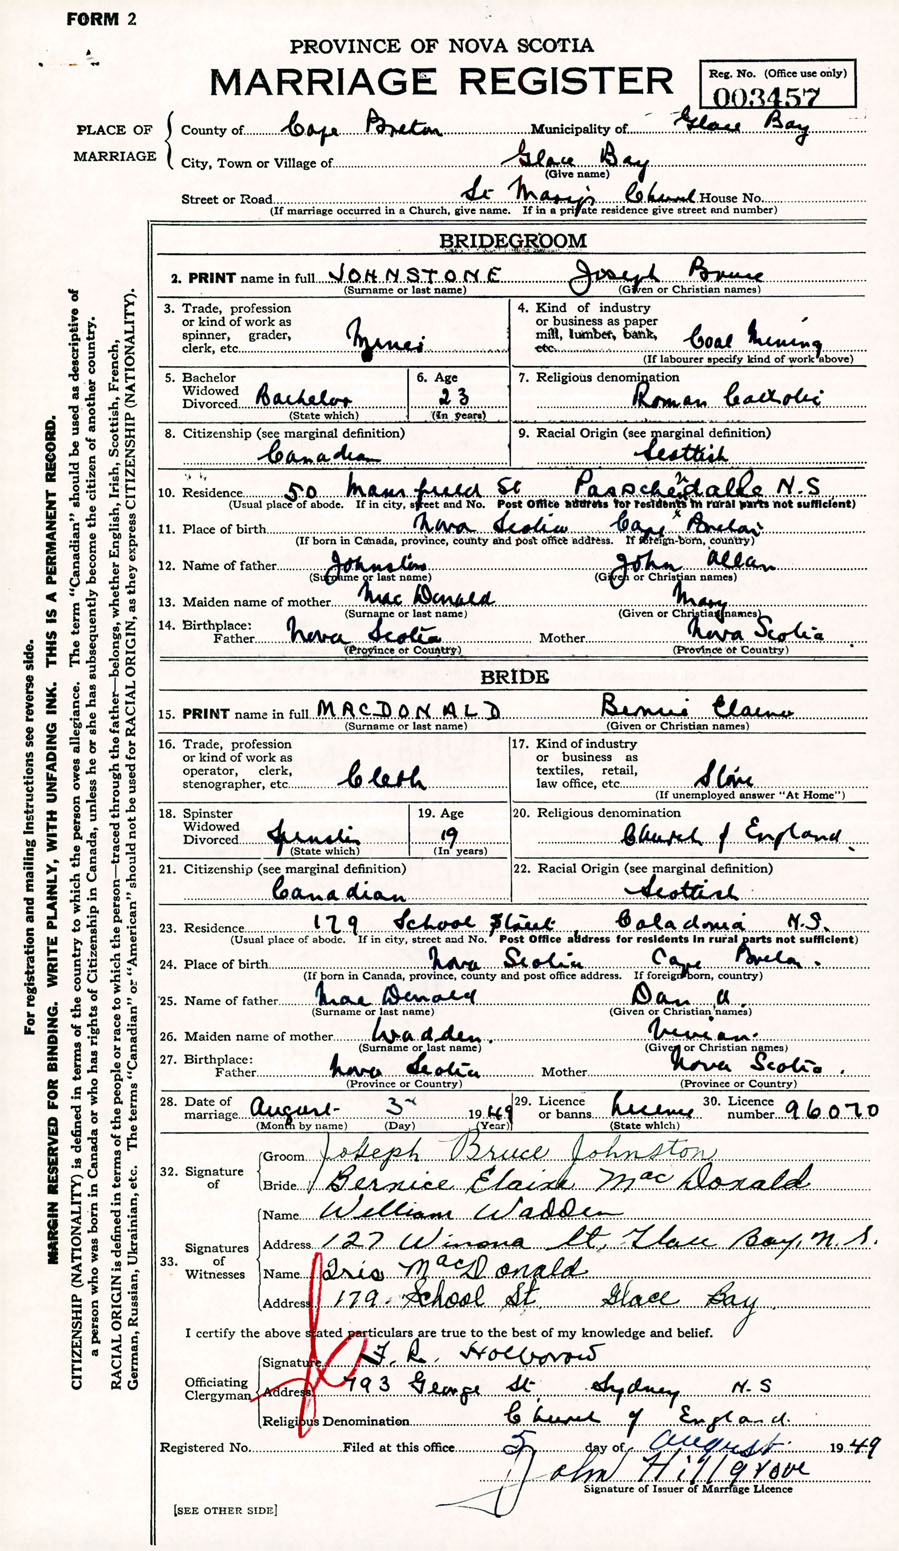 FORM 2
PROVINCE OF NOVA SCOTIA
MARRIAGE REGISTER
Reg. No. (Office use only)
003457
PLACE OF MARRIAGE
County of Cape Breton Municipality of Glace Bay
City, Town or Village of Glace Bay
(Give name)
Street or Road St Mary's Church House No.
(If marriage occurred in a Church, give name. If in a private residence give street and number)
BRIDEGROOM
2. PRINT name in full JOHNSTONE Joseph Bruce
(Surname or last name) (Given or Christian names)
3. Trade, profession or kind of work as spinner, grader, clerk, etc.
4. Kind of industry or business as paper mill, lumber, bank, etc. Coal Mining
(If labourer specify kind of work above)
5. Bachelor Widowed Divorced Bachelor
(State which)
6. Age 23
(In years)
7. Religious denomination Roman Catholic
8. Citizenship (see marginal definition) Canadian
9. Racial Origin (see marginal definition) Scottish
10. Residence 50 Mansfield St Passchendalle N.S.
(Usual place of abode. If in city, street and No. Post Office address for residents in rural parts not sufficient)
11. Place of birth Nova Scotia Cape Breton
(If born in Canada, province, county and post office address. If foreign-born, country)
12. Name of father Johnston John Allan
(Surname or last name) (Given or Christian names)
13. Maiden name of mother Mac Donald Mary
(Surname or last name) (Given or Christian names)
14. Birthplace:
Father Nova Scotia Mother Nova Scotia
(Province or Country) (Province or Country)
BRIDE
15. PRINT name in full MACDONALD Bernice Elaine
(Surname or last name) (Given or Christian names)
16. Trade, profession or kind of work as operator, clerk, stenographer, etc. Clerk
17. Kind of industry or business as textiles, retail, law office, etc. Store
(If unemployed answer "At Home")
18. Spinster Widowed Divorced Spinster
(State which)
19. Age 19
(In years)
20. Religious denomination Church of England.
21. Citizenship (see marginal definition) Canadian
22. Racial Origin (see marginal definition) Scottish
23. Residence 179 School Street Caladonia N.S.
(Usual place of abode. If in city, street and No. Post Office address for residents in rural parts not sufficient)
24. Place of birth Nova Scotia Cape Breton.
(If born in Canada, province, county and post office address. If foreign born, country)
25. Name of father Mac Donald Dan A.
(Surname or last name) (Given or Christian names)
26. Maiden name of mother Wadden. Vivian.
(Surname or last name) (Given or Christian names)
27. Birthplace:
Father Nova Scotia Mother Nova Scotia.
(Province or Country) (Province or Country)
28. Date of marriage August 3rd 1949
(Month by name) (Day) (Year)
29. Licence or banns licence
(State which)
30. Licence number 96070
32. Signature of
Groom Joseph Bruce Johnston
Bride Bernice Elaine MacDonald
33. Signatures of Witnesses
Name William Wadden
Address 127 Winona St, Glace Bay, N.S.
Name Iris MacDonald
Address 179. School St Glace Bay.
I certify the above stated particulars are true to the best of my knowledge and belief.
Officiating Clergyman
Signature F. R. Holborow
Address 793 George St. Sydney N.S
Religious Denomination Church of England.
Registered No. Filed at this office 5 day of August 1949
John Hillgrove
Signature of Issuer of Marriage Licence
[SEE OTHER SIDE]
For registration and mailing instructions see reverse side.
MARGIN RESERVED FOR BINDING. WRITE PLAINLY, WITH UNFADING INK. THIS IS A PERMANENT RECORD.
CITIZENSHIP (NATIONALITY) is defined in terms of the country to which the person owes allegiance. The term "Canadian" should be used as descriptive of
a person who was born in Canada or who has rights of Citizenship in Canada, unless he or she has subsequently become the citizen of another country.
RACIAL ORIGIN is defined in terms of the people or race to which the person—traced through the father—belongs, whether English, Irish, Scottish, French,
German, Russian, Ukrainian, etc. The terms "Canadian" or "American" should not be used for RACIAL ORIGIN, as they express CITIZENSHIP (NATIONALITY).